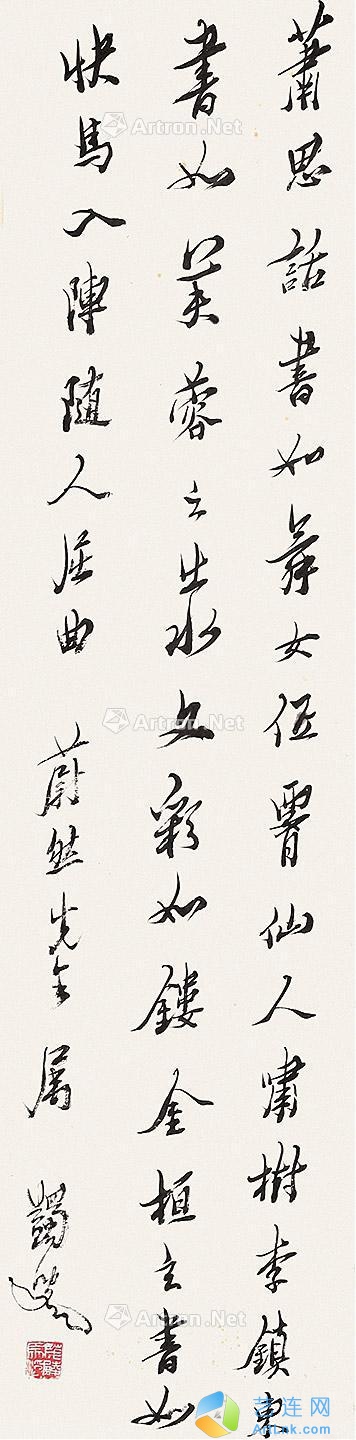 蕭思話書如舞女低腰仙人嘯樹李鎮東
書如芙蓉之出水文彩如鏤金桓玄書如
快馬入陣隨人屈曲 蔚然先生屬 蠲叟
Artron.Net
Artron.Net
Artron.Net
Artron.Net
Artron.Net
Artron.Net
Artron.Net
Artron.Net
艺连网